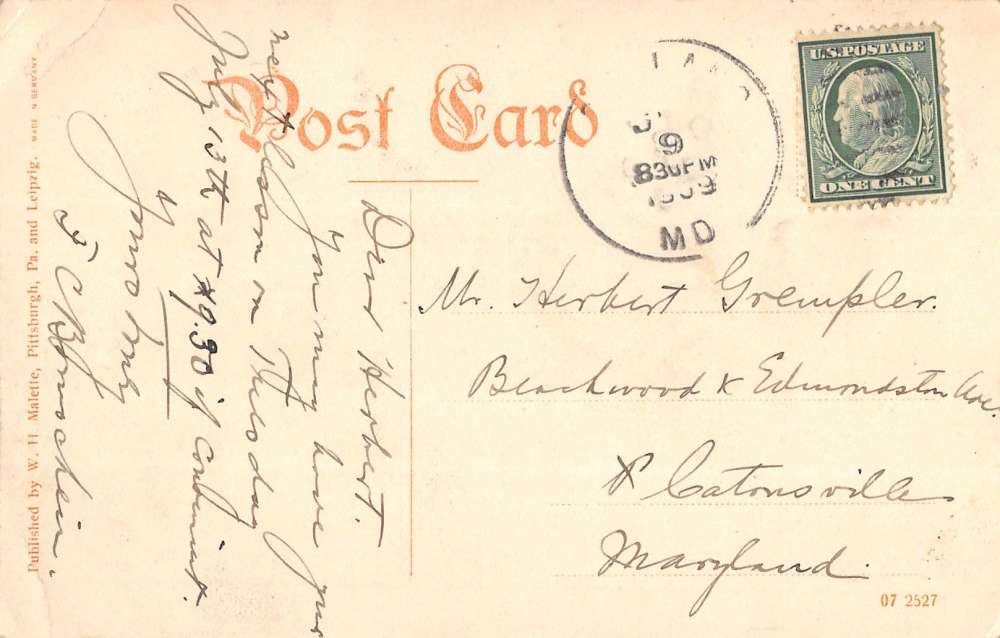 Post Card
U.S. POSTAGE
ONE CENT
9
830 PM
1909
MD
Dear Herbert.
You may have your
next lesson on Thusday
July 13th at 9.30 if conveniant.
Yours truly
Mr. Herbert Grempler.
Beachwood & Edmondston Ave.
Catonsville
Maryland.
Published by W. H. Malette, Pittsburgh, Pa. and Leipzig. MADE IN GERMANY
07 2527